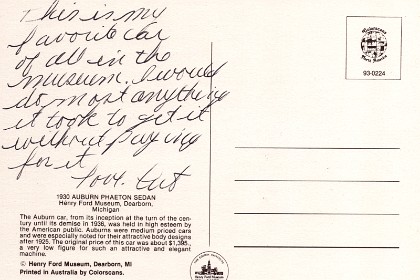 This is my
favorite car
of all in the
museum. I would
do most anything
it took to get it
without paying
for it
Love.
1930 AUBURN PHAETON SEDAN
Henry Ford Museum, Dearborn,
Michigan
The Auburn car, from its inception at the turn of the cen-
tury until its demise in 1936, was held in high esteem by
the American public. Auburns were medium priced cars
and were especially noted for their attractive body designs
after 1925. The original price of this car was about $1,395.,
a very low figure for such an attractive and elegant
machine.
© Henry Ford Museum, Dearborn, MI
Printed in Australia by Colorscans.
93-0224
Henry Ford Museum